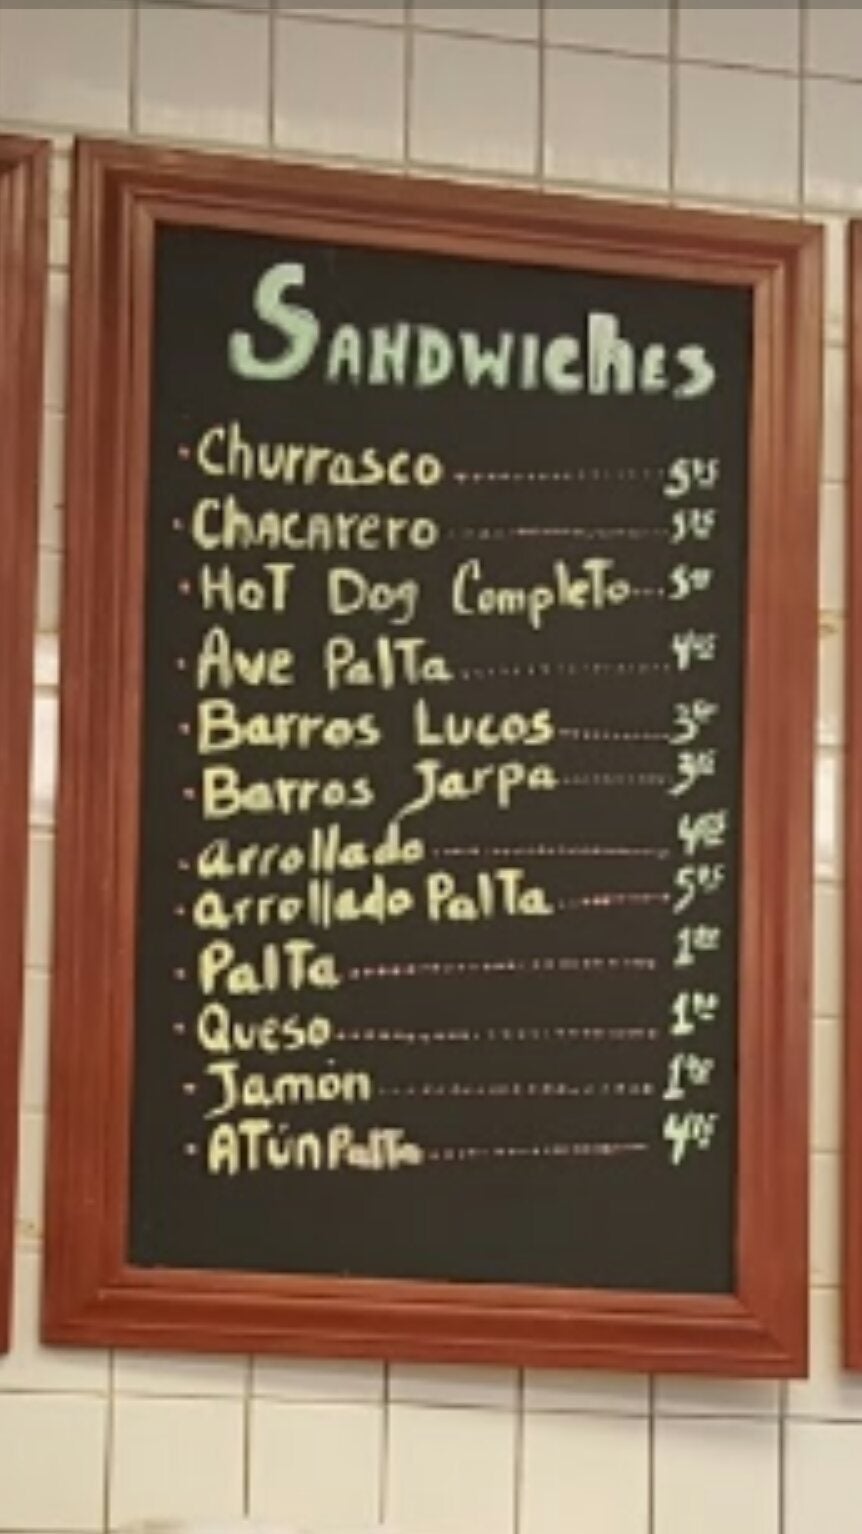 SANDWIChES
· Churrasco ........ 5
· ChACArero ........
· HoT Dog CompleTo ... 5
· Ave PalTa ........ 4
· Barros Lucos ........ 3
· Barros Jarpa ........ 3
· arrollado ........ 4
· arrollado PalTa ........ 5
· PalTa ........ 1
· Queso ........ 1
· Jamón ........ 1
· ATúnPalTa ........ 4